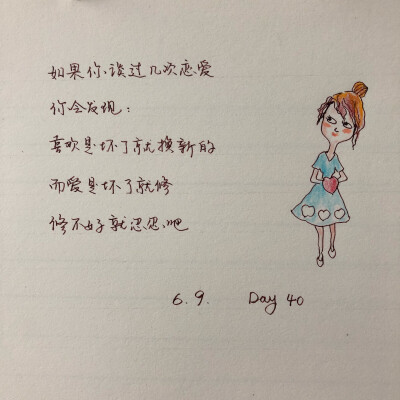 如果你谈过几次恋爱
你会发现：
喜欢是坏了就换新的
而爱是坏了就修
修不好就忍忍吧
6.9. Day 40